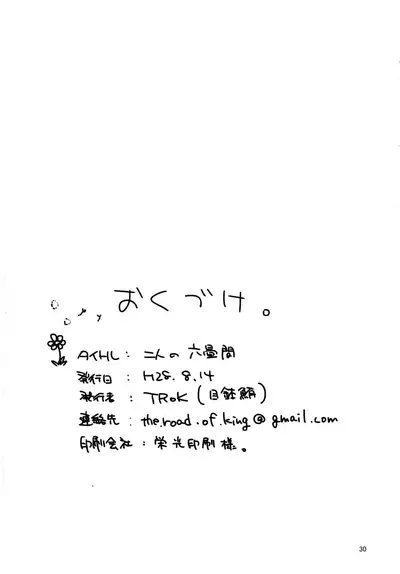 おくづけ。
タイトル：二人の六畳間
発行日：H28.8.14
発行者：TRoK(目鉢鮪)
連絡先：the.road.of.king@gmail.com
印刷会社：栄光印刷様。
30